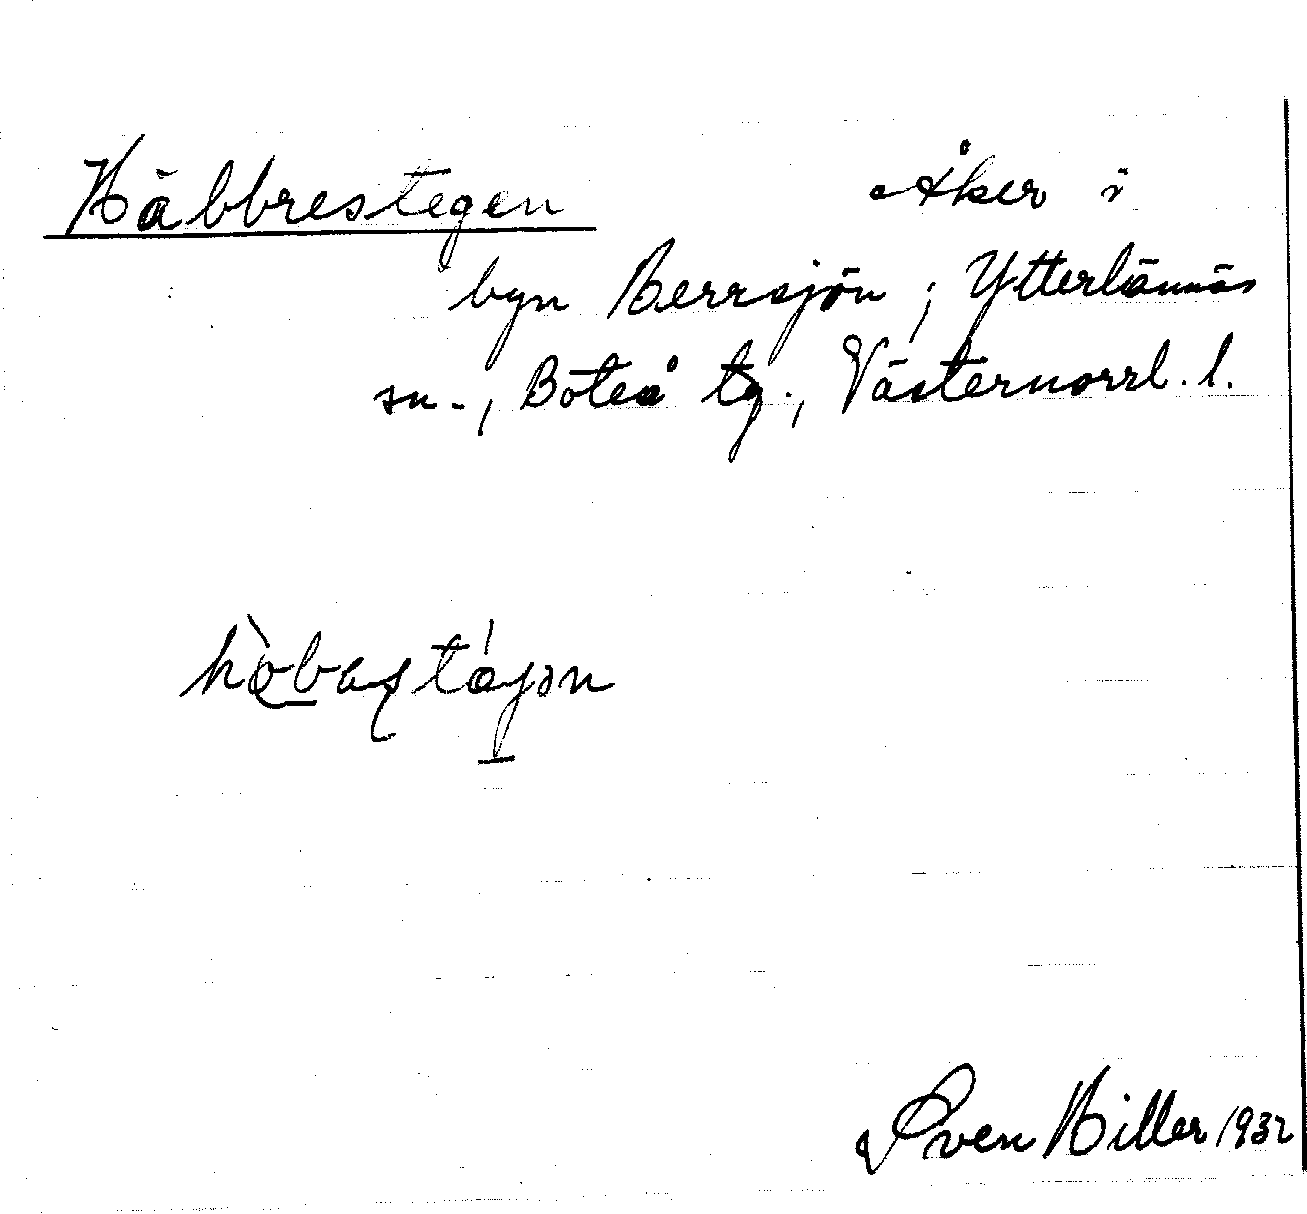 Häbbrestegen
Åker i
byn Herrsjön, Ytterlännäs
sn., Boteå tg., Västernorrl. l.
Sven Hiller 1932